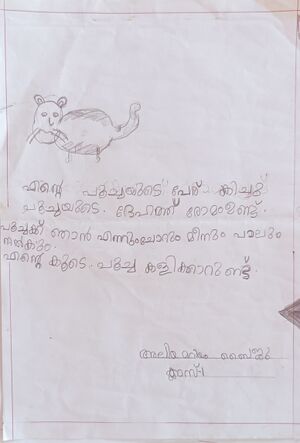 എന്റെ പൂച്ചയുടെ പേര് കിച്ചു
പൂച്ചയുടെ. ദേഹത്ത് രോമംഉണ്ട്.
പൂച്ചക്ക് ഞാൻ എന്നുംചോറും മീനും പാലും
നൽകും.
എന്റെ കൂടെ.. പൂച്ച കളിക്കാറുണ്ട്.
അലിയ മറിയം ബൈജു
ക്ലാസ്-1